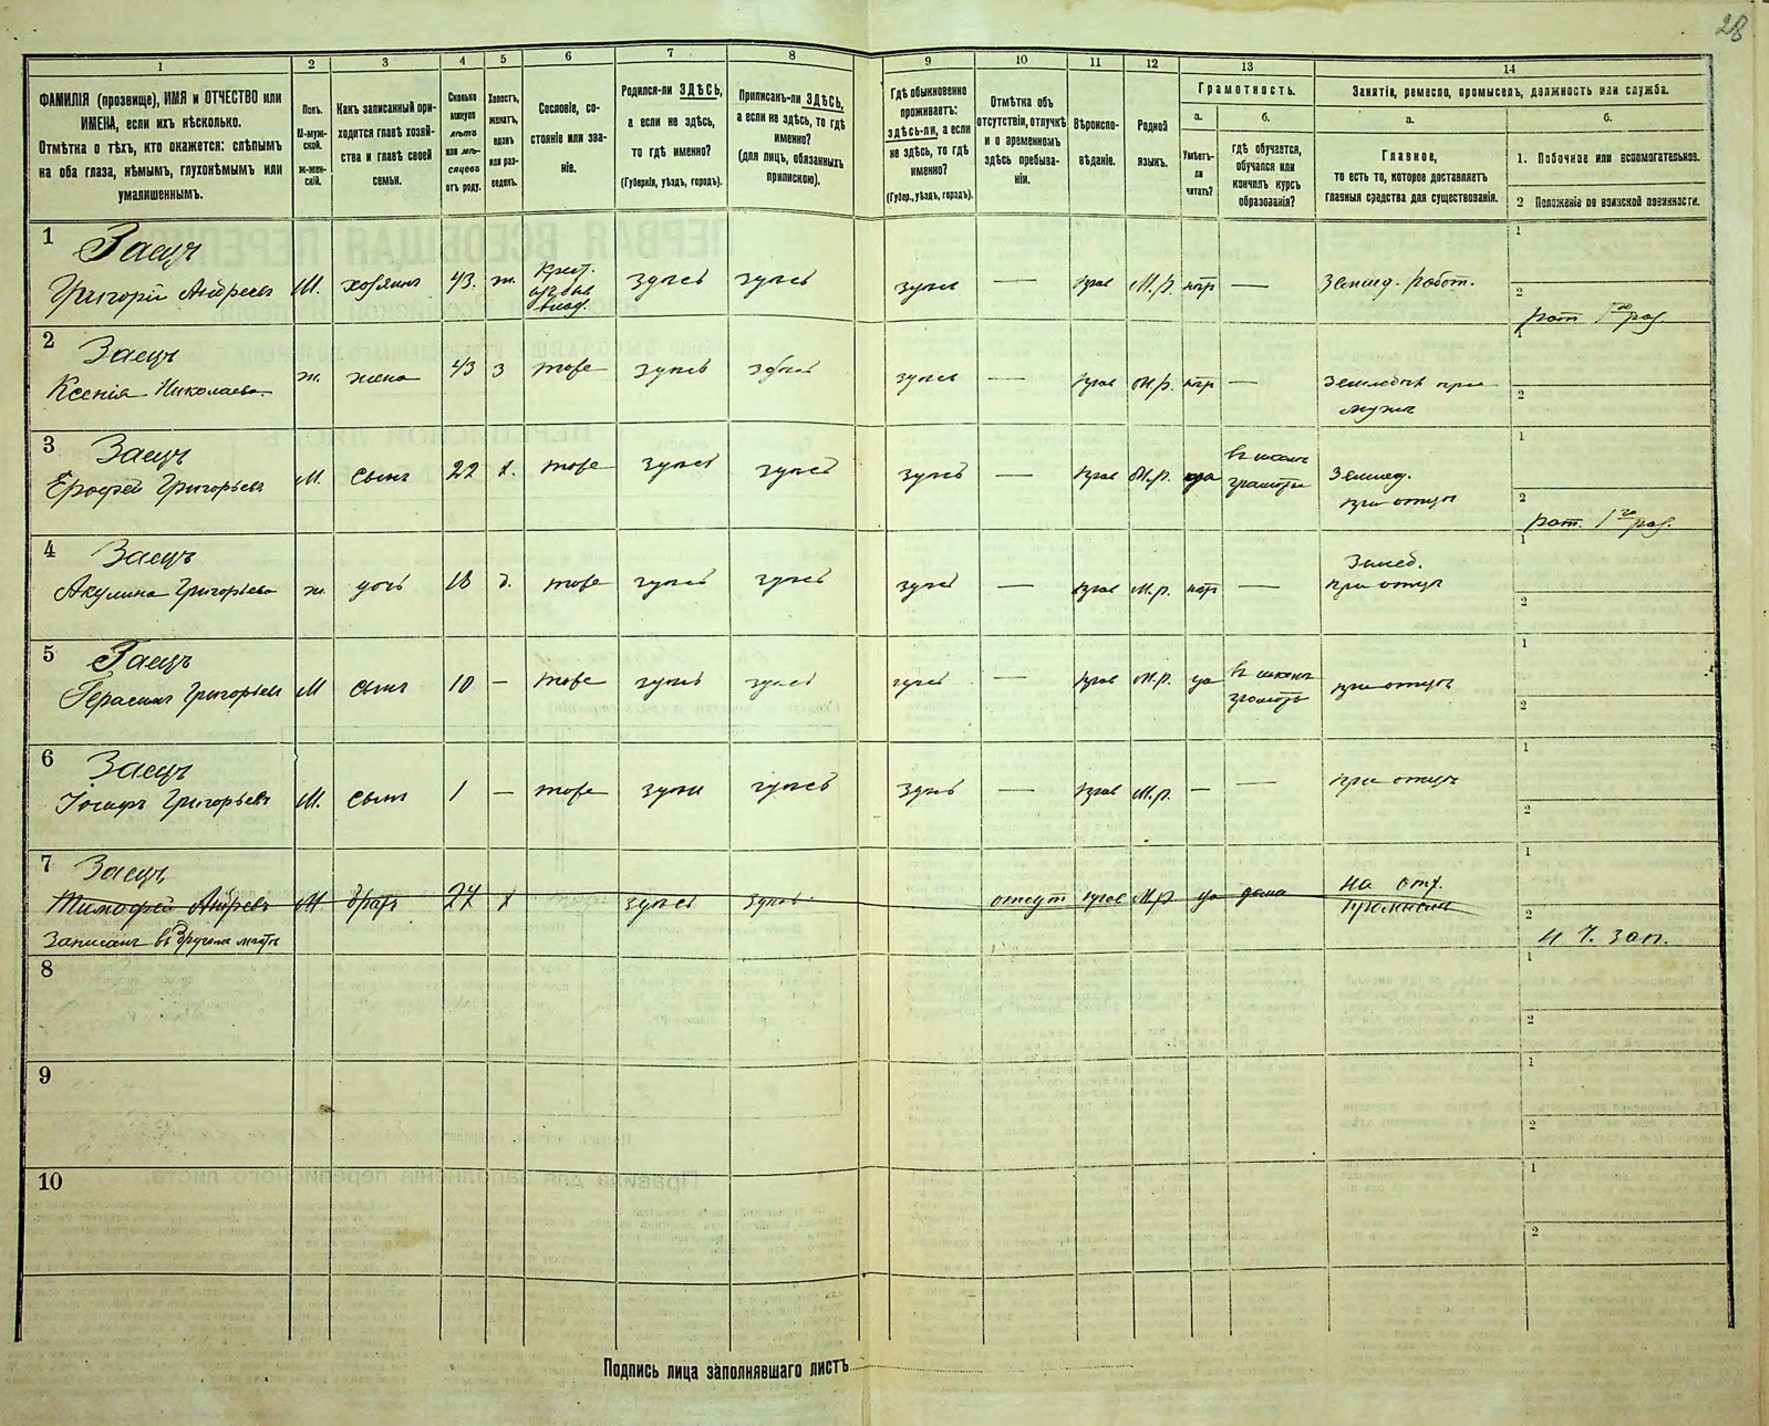 28
1
2
3
4
5
6
7
8
9
10
11
12
13
14
ФАМИЛІЯ (прозвище), ИМЯ и ОТЧЕСТВО или
ИМЕНА, если ихъ нѣсколько.
Отмѣтка о тѣхъ, кто окажется: слѣпымъ
на оба глаза, нѣмымъ, глухонѣмымъ или
умалишеннымъ.
Полъ.
М-муж-
ской.
ж-жен-
скій.
Какъ записанный при-
ходится главѣ хозяй-
ства и главѣ своей
семьи.
Сколько
минуло
лѣтъ
или мѣ-
сяцевъ
отъ роду.
Холостъ,
женатъ,
вдовъ
или раз-
веденъ.
Сословіе, со-
стояніе или зва-
ніе.
Родился-ли ЗДѢСЬ,
а если не здѣсь,
то гдѣ именно?
(Губернія, уѣздъ, городъ).
Приписанъ-ли ЗДѢСЬ,
а если не здѣсь, то гдѣ
именно?
(для лицъ, обязанныхъ
припискою).
Гдѣ обыкновенно
проживаетъ:
здѣсь-ли, а если
не здѣсь, то гдѣ
именно?
(Губер., уѣздъ, городъ).
Отмѣтка объ
отсутствіи, отлучкѣ
и о временномъ
здѣсь пребыва-
ніи.
Вѣроиспо-
вѣданіе.
Родной
языкъ.
Грамотность.
а.
Умѣетъ-
ли
читать?
б.
гдѣ обучается,
обучался или
кончилъ курсъ
образованія?
Занятія, ремесло, промыселъ, должность или служба.
а.
Главное,
то есть то, которое доставляетъ
главныя средства для существованія.
б.
1. Побочное или вспомогательное.
2 Положеніе по воинской повинности.
1 Заецъ
Григорій Андреевъ М. хозяинъ 43. ж. Крест. здѣсь здѣсь здѣсь — прав М.р. нѣт — Землед. работ. 1
2 рат 1го раз.
2 Заецъ
Ксенія Николаева ж. жена 43 з тоже здѣсь здѣсь здѣсь — прав М.р. нѣт — Земледѣл при мужѣ 1
2
3 Заецъ
Ерофей Григорьевъ М. сынъ 22 х. тоже здѣсь здѣсь здѣсь — прав М.р. да въ школѣ грамоты Землед. при отцѣ 1
2 рат. 1го раз.
4 Заецъ
Акулина Григорьева ж. дочь 18 д. тоже здѣсь здѣсь здѣсь — прав М.р. нѣт — Землед. при отцѣ 1
2
5 Заецъ
Герасимъ Григорьевъ М сынъ 10 — тоже здѣсь здѣсь здѣсь — прав М.р. да въ школѣ грамоты при отцѣ 1
2
6 Заецъ
Іосифъ Григорьевъ М. сынъ 1 — тоже здѣсь здѣсь здѣсь — прав М.р. — — при отцѣ 1
2
7 Заецъ
Тимофей Андреевъ М братъ 24 х здѣсь здѣсь отсут прав М.р. да дома на 1
Записанъ въ 2
8 1
2
9 1
2
10 1
2
Подпись лица заполнявшаго листъ